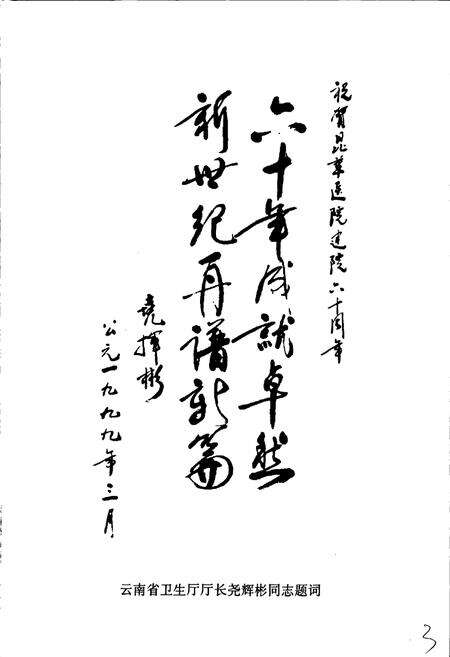 祝贺昆华医院建院六十周年
六十年成就卓然
新世纪再谱新篇
尧挥彬
公元一九九九年三月
云南省卫生厅厅长尧辉彬同志题词
3